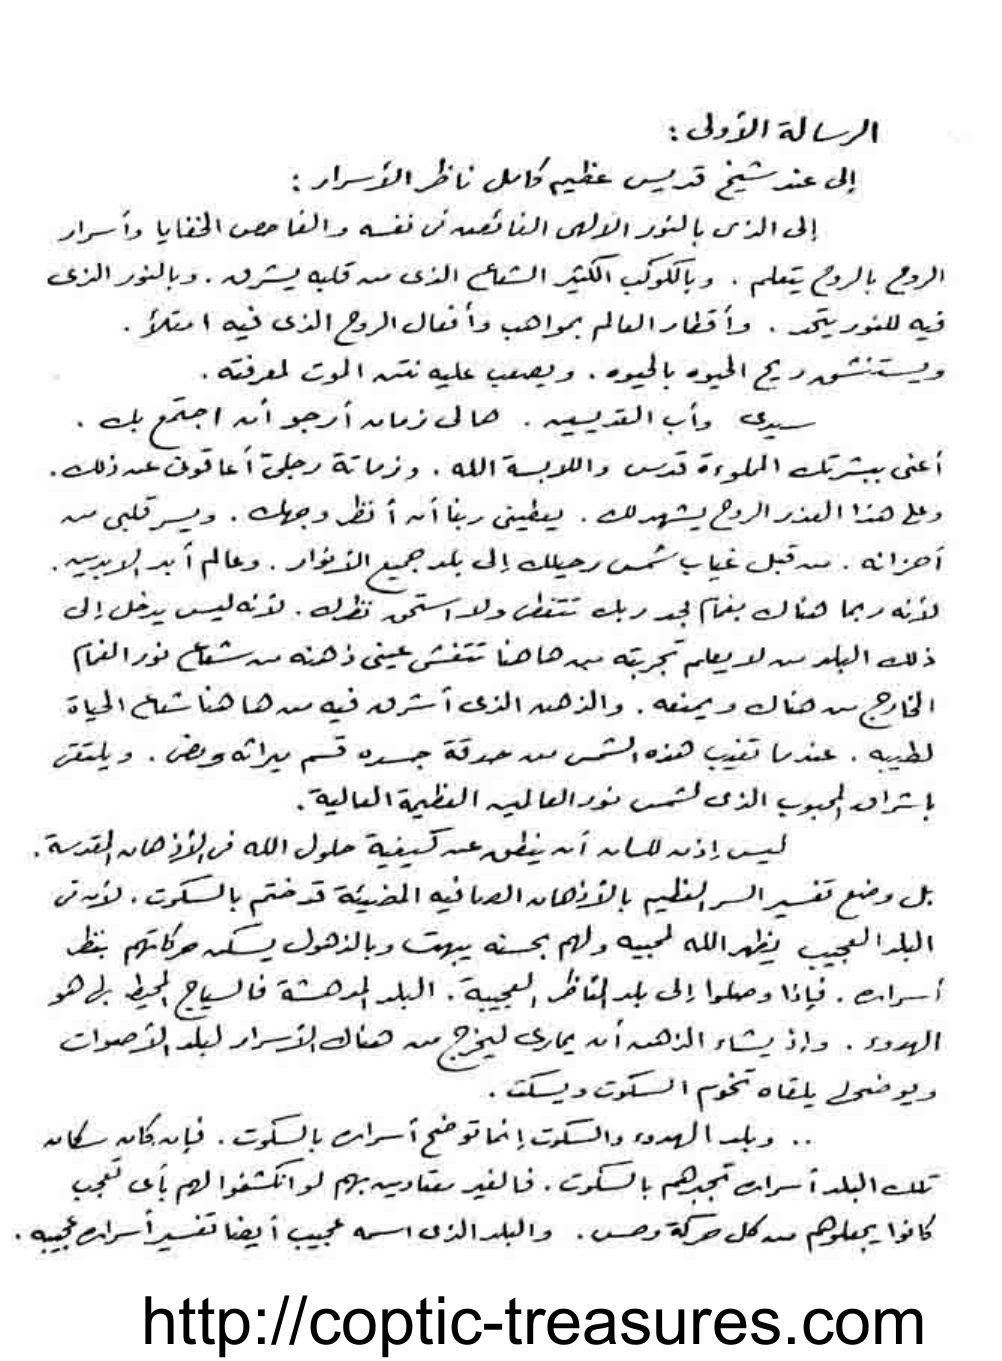 الرسالة الأولى :
إلى عند شيخ قديس عظيم كامل ناظر الأسرار :
إلى الذى بالنور الالهى الفائض فى نفسه والفاحص الخفايا وأسرار
الروح بالروح يتعلم . وبالكوكب الكثير الشعاع الذى من قلبه يشرق . وبالنور الذى
فيه للنور يتحد . وأقطار العالم بمواهب وأفعال الروح الذى فيه امتلأ .
ويستنشق ريح الحيوه بالحيوه . ويصعب عليه نتن الموت لمعرفته .
سيدى وأب القديسين . هالى زمان أرجو أن اجتمع بك .
أعنى ببشرتك المملوءة قدس واللابسة الله . وزمانة رجلىّ أعاقونى عن ذلك .
وعلى هذا العذر الروح يشهد لك . يعطينى ربنا أن أنظر وجهك . ويسر قلبى من
أحزانه . من قبل غياب شمس رحيلك إلى بلد جميع الأنوار . وعالم أبد الابدين .
لأنه ربما هناك بغمام لجد ربك تتغطى ولا استحق نظرك . لأنه ليس يدخل إلى
ذلك البلد من لا يعلم تجربته من هاهنا تتغشى عينى ذهنه من شعاع نور الغمام
الخارج من هناك ويمنعه . والذهن الذى أشرق فيه من هاهنا شعاع الحياة
لطيبه . عندما تغيب هذه الشمس من حدقة جسده قسم ميراثه ويض . ويلتقى
باشراق المحبوب الذى لشمس نور العالمين العظيمة العالية .
ليس إذن للسان أن ينطق عن كيفية حلول الله فى الأذهان المقدسة .
بل وضع تفسير السر العظيم بالأذهان الصافيه المضيئة قد ختم بالسكوت . لأن فى
البلد العجيب يظهر الله لمحبيه ولهم بحسنه يبهت وبالذهول يسكن حركاتهم بنظر
أسراره . فإذا وصلوا إلى بلد المناظر العجيبة . البلد المدهشة فالسياج المحيط بى هو
الهدوء . وإذ يشاء الذهن أن يمارى ليخرج من هناك الأسرار لبلد الأصوات
ويوضح يلقاه تخوم السكوت ويسكت .
.. وبلد الهدوء والسكوت إنما توضح أسراره بالسكوت . فإن كان سكان
تلك البلد أسراره تجدهم بالسكوت . فالغير معتادين بهم لو انكشفوا لهم بأى تعجب
كانوا يجعلوهم من كل حركة وحس . والبلد الذى اسمه عجيب أيضا تفسير أسراره عجيبه .
http://coptic-treasures.com